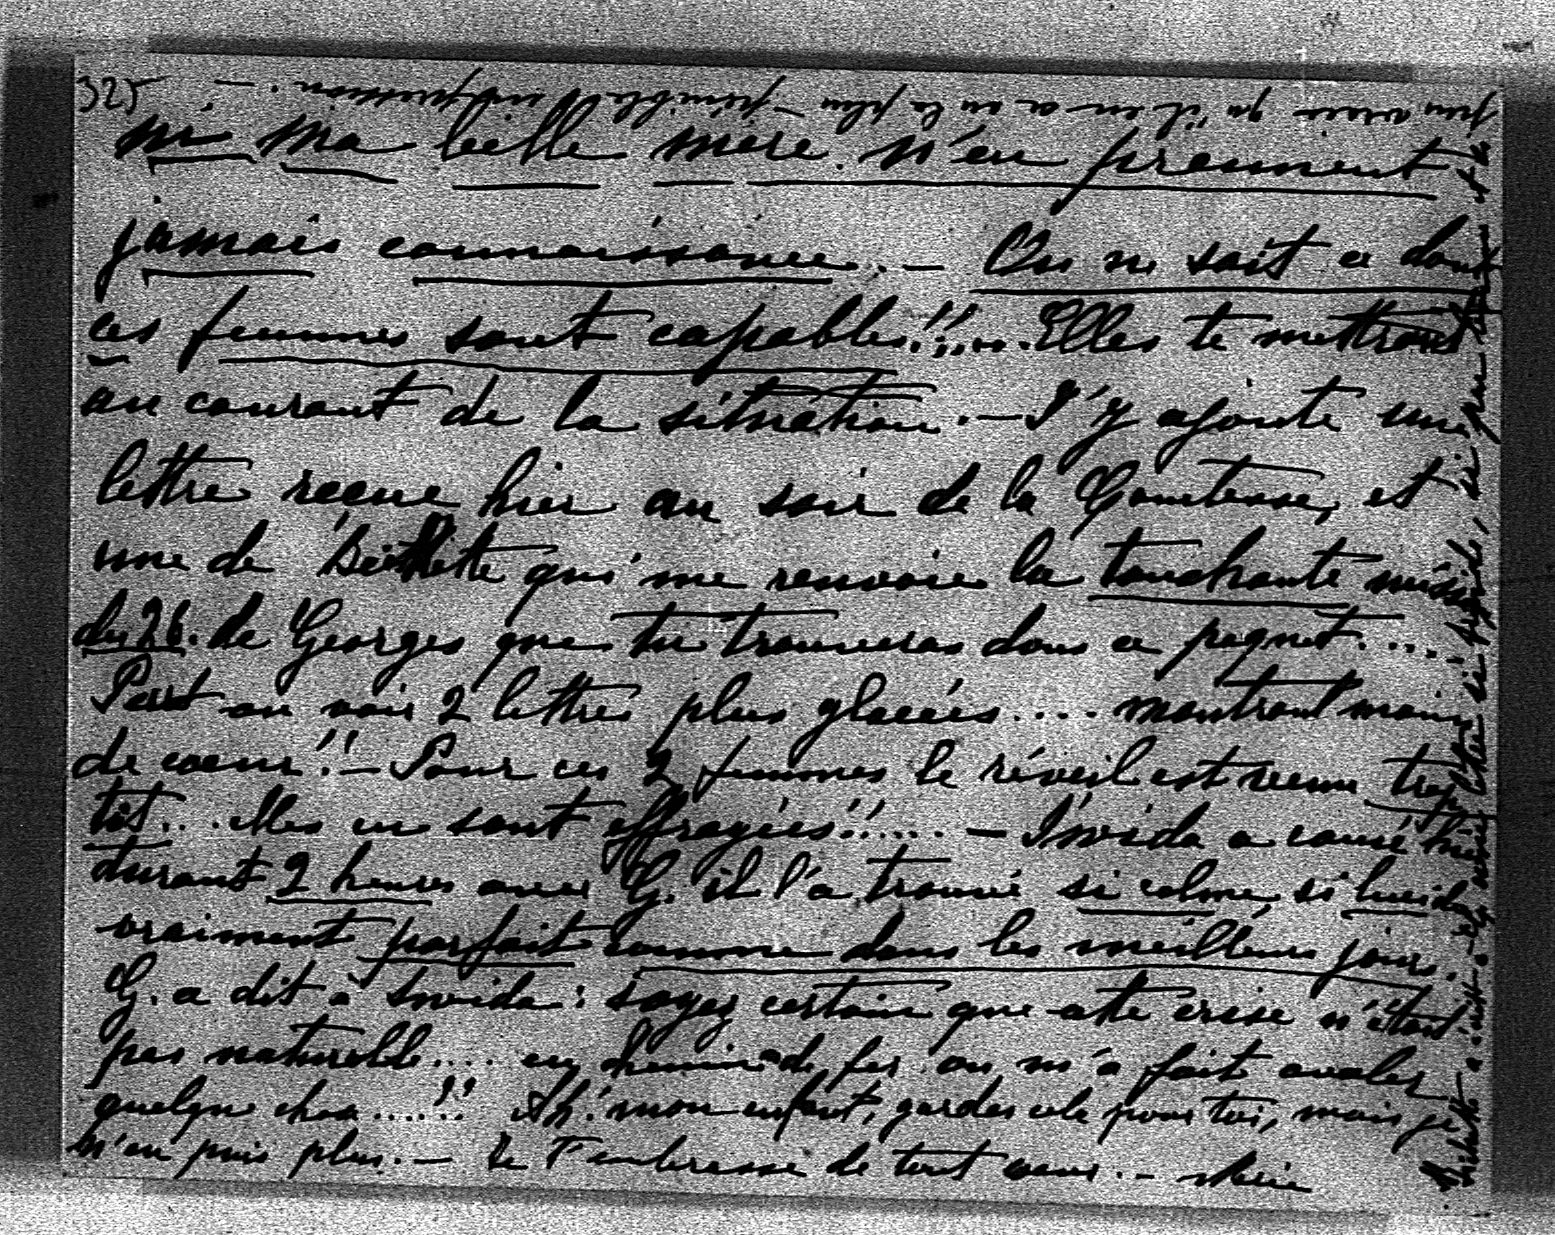 325
ni ma belle mère n'en prennent
jamais connaissance. — On ne sait ce dont
ces femmes sont capables!!..... Elles te mettront
au courant de la situation. — J'y ajoute une
lettre reçue hier au soir de la Comtesse, et
une de qui me renvoie la touchante missive
du 26. de Georges que tu trouveras dans ce paquet.....
Peut on voir 2 lettres plus glacées.... montrant moins
de coeur!! — Pour ces 2 femmes le réveil est venu trop
tôt... elles en sont effrayées!!..... — Svvida a causé hier
durant 2 heures avec G. il l'a trouvé si calme, si lucide
vraiment parfait comme dans les meilleurs jours.
G. a dit à Svvida: soyez certain que cette crise n'était
pas naturelle.... en chemin de fer on m'a fait avaler
quelque chose.....!! Ah! mon enfant, gardes cela pour toi, mais je
n'en puis plus. — Je T'embrasse de tout coeur. —
qu'il en a eu la plus pénible impression. —